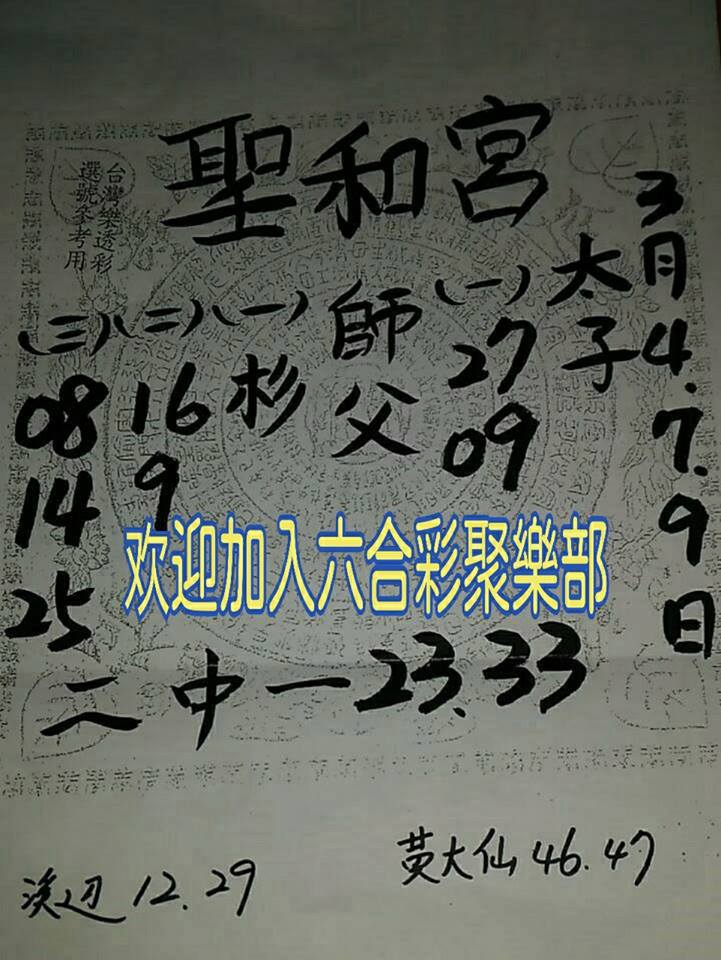 聖和宮
台灣樂透彩
選號參考用
3月4.7.9日
太子
(一)
27
09
師父
(一)
杉
(二)
16
9
(三)
08
14
25
欢迎加入六合彩聚樂部
二中一23.33
黃大仙46.47
12.29